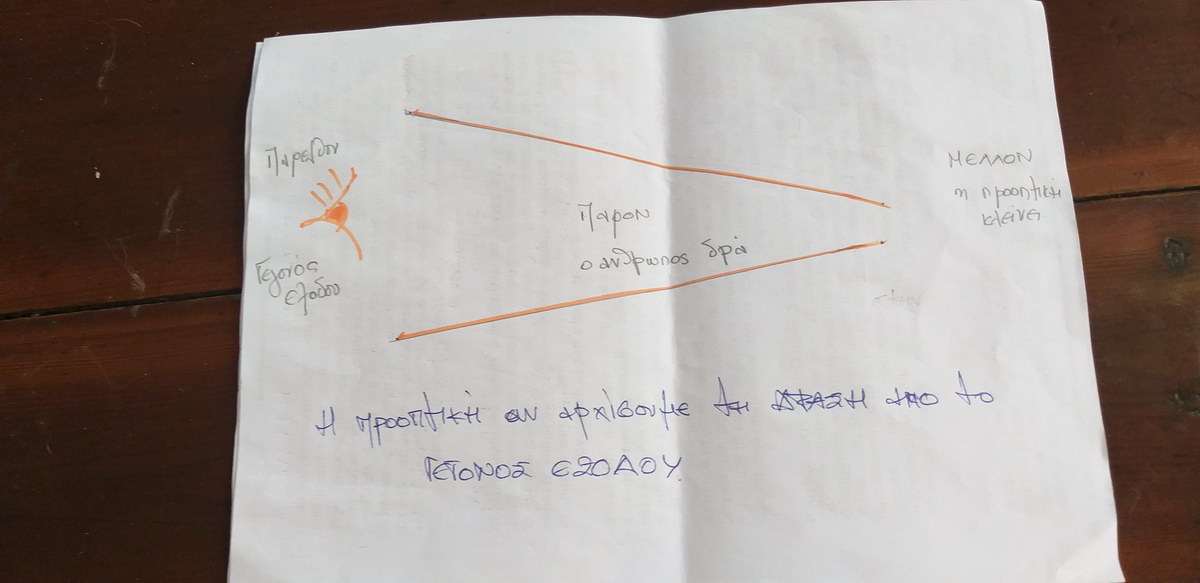 Παρελθον
Γεγονός
εξοδου
Παρον
ο ανθρωπος δρά
ΜΕΛΛΟΝ
η προοπτικη
κλείνει
Η προοπτική αν αρχίσουμε τη ΔΡΑΣΗ απο το
ΓΕΓΟΝΟΣ ΕΞΟΔΟΥ.